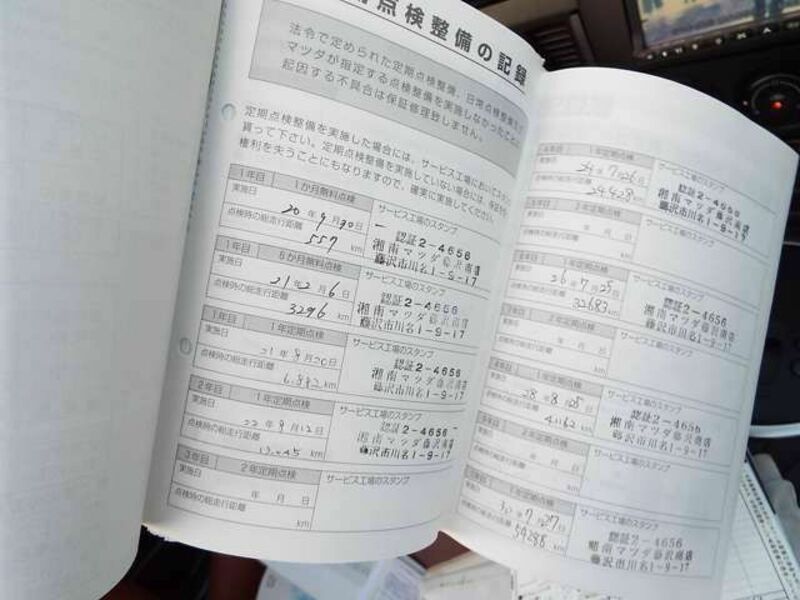 点検整備の記録
法令で定められた定期点検整備、日常点検整備
マツダが指定する点検整備を実施しなかったこと
起因する不具合は保証修理致しません。
定期点検整備を実施した場合には、サービス工場においてスタンプ
貰って下さい。定期点検整備を実施していない場合には、保証
権利を失うことにもなりますので、確実に実施してください。
1年目 1か月無料点検 サービス工場のスタンプ
実施日 20年9月30日
点検時の総走行距離 557 km
認証2-4656
湘南マツダ藤沢南店
藤沢市川名1-9-17
1年目 6か月無料点検 サービス工場のスタンプ
実施日 21年2月6日
点検時の総走行距離 3296 km
認証2-4656
湘南マツダ藤沢南店
藤沢市川名1-9-17
1年目 1年定期点検 サービス工場のスタンプ
実施日 21年8月30日
点検時の総走行距離 6,882 km
認証2-4656
湘南マツダ藤沢南店
藤沢市川名1-9-17
2年目 1年定期点検 サービス工場のスタンプ
実施日 22年9月12日
点検時の総走行距離 km
認証2-4656
湘南マツダ藤沢南店
藤沢市川名1-9-17
3年目 2年定期点検 サービス工場のスタンプ
実施日 年 月 日
点検時の総走行距離 km
1年定期点検 サービス工場のスタンプ
実施日 24年7月26日
点検時の総走行距離 24,428 km
認証2-4656
湘南マツダ藤沢南店
藤沢市川名1-9-17
2年定期点検 サービス工場のスタンプ
実施日 年 月 日
点検時の総走行距離 km
1年定期点検 サービス工場のスタンプ
実施日 26年7月25日
点検時の総走行距離 32683 km
認証2-4656
湘南マツダ藤沢南店
藤沢市川名1-9-17
2年定期点検 サービス工場のスタンプ
実施日 年 月 日
点検時の総走行距離 km
1年定期点検 サービス工場のスタンプ
実施日 28年8月25日
点検時の総走行距離 41162 km
認証2-4656
湘南マツダ藤沢南店
藤沢市川名1-9-17
2年定期点検 サービス工場のスタンプ
実施日 年 月 日
点検時の総走行距離 km
1年定期点検 サービス工場のスタンプ
実施日 30年7月27日
点検時の総走行距離 54288 km
認証2-4656
湘南マツダ藤沢南店
藤沢市川名1-9-17